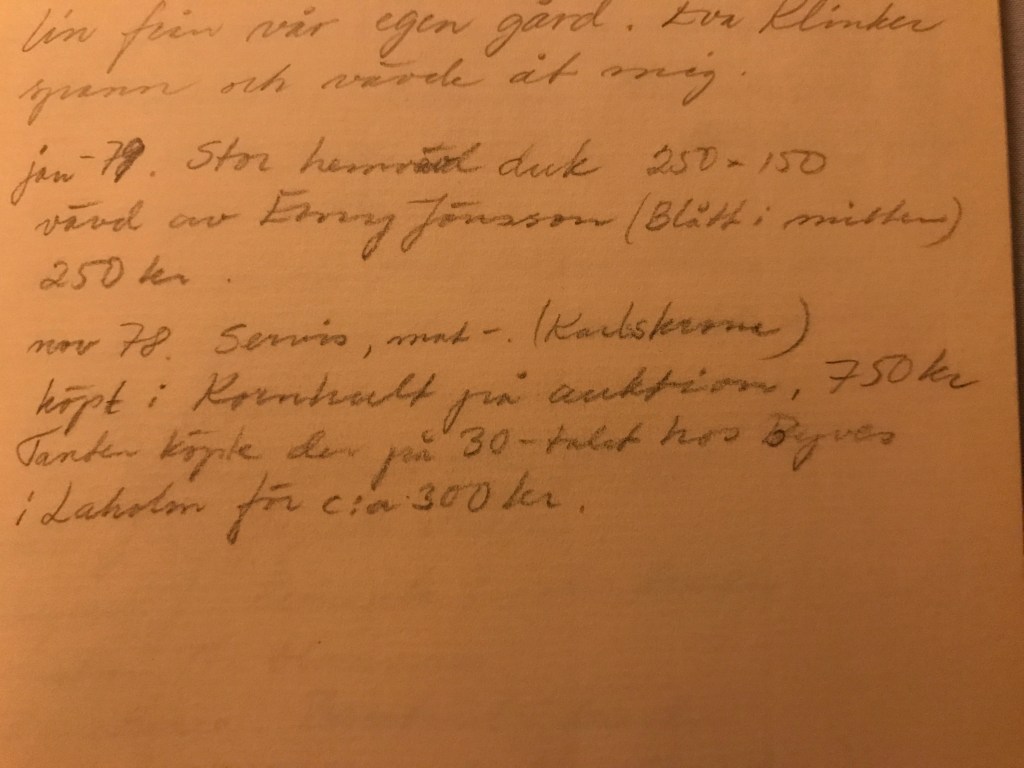 lin från vår egen gård. Eva Klinker
spann och vävde åt mig.
jan-79. Stor hemvävd duk 250-150
vävd av Jönsson (Blått i mitten)
250 kr.
nov 78. Servis, mat-. (Karlskrona)
köpt i Kornhult på auktion, 750 kr
Tanten köpte den på 30-talet hos Byves
i Laholm för c:a 300 kr.